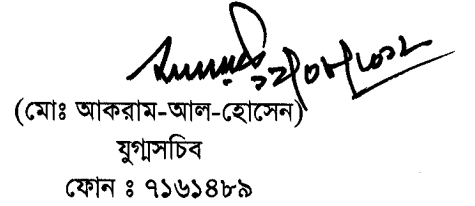 (মোঃ আকরাম-আল-হোসেন)
যুগ্মসচিব
ফোন ঃ ৭১৬১৪৮৯